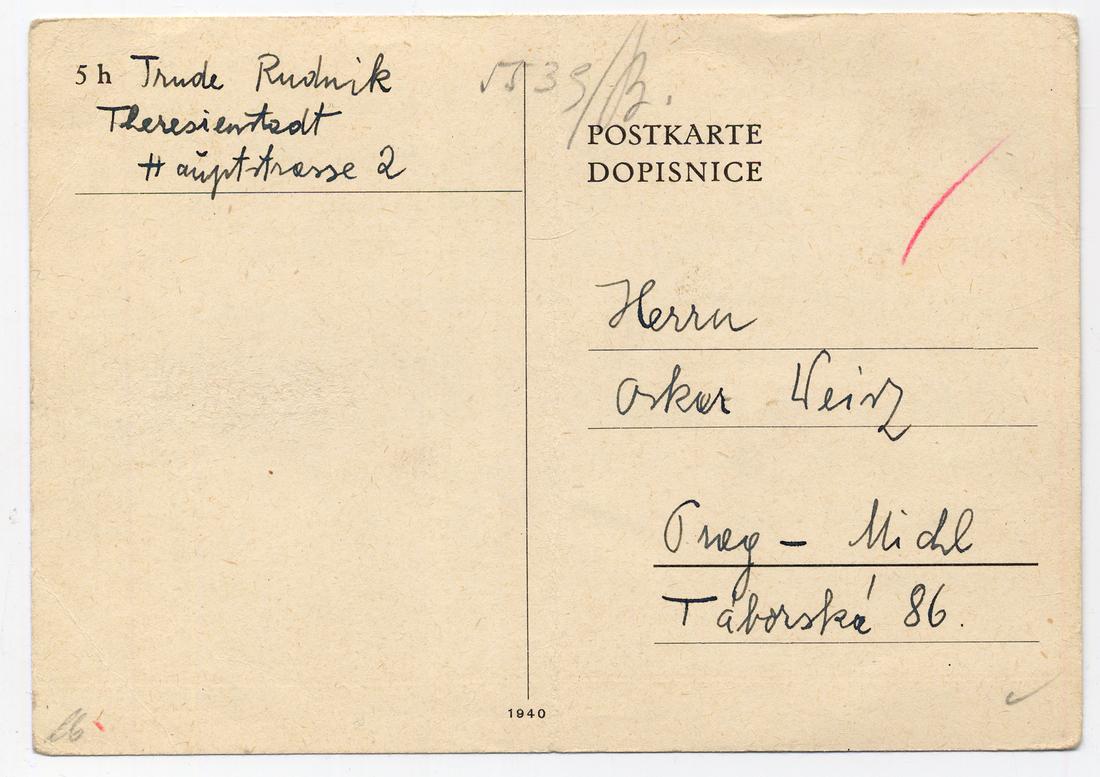 5 h Trude Rudnik
Theresienstadt
Hauptstrasse 2
POSTKARTE
DOPISNICE
Herrn
Oskar Weisz
Prag - Michl
Táborská 86.
1940